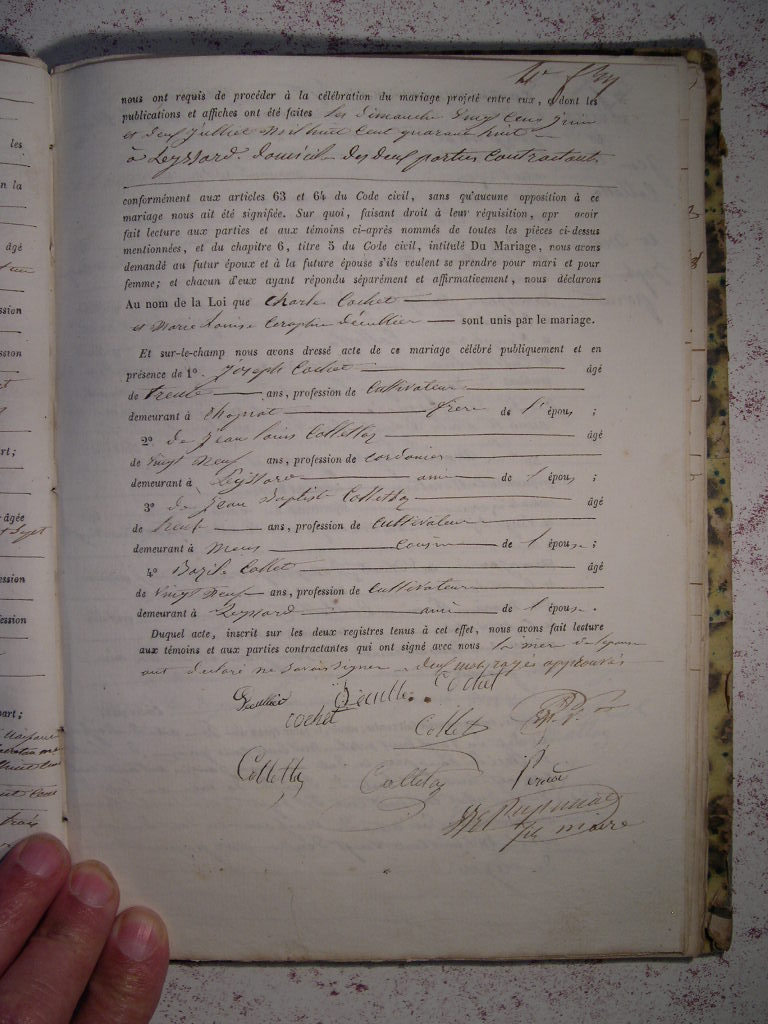 nous ont requis de procéder à la célébration du mariage projeté entre eux, et dont les
publications et affiches ont été faites les dimanche vingt cinq juin
et deux juillet mil huit cent quarante huit
à Leyssard domicile des deux parties contractants
conformément aux articles 63 et 64 du Code civil, sans qu'aucune opposition à ce
mariage nous ait été signifiée. Sur quoi, faisant droit à leur réquisition, apr avoir
fait lecture aux parties et aux témoins ci-après nommés de toutes les pièces ci-dessus
mentionnées, et du chapitre 6, titre 5 du Code civil, intitulé Du Mariage, nous avons
demandé au futur époux et à la future épouse s'ils veulent se prendre pour mari et pour
femme; et chacun d'eux ayant répondu séparément et affirmativement, nous déclarons
Au nom de la Loi que Charle Cochet
et Marie Louise Ceraphie Décuillier sont unis par le mariage.
Et sur-le-champ nous avons dressé acte de ce mariage célébré publiquement et en
présence de 1o. Joseph Cochet âgé
de trente ans, profession de Cultivateur
demeurant à frère de l'épous ;
2o de Jean Louis Collettaz âgé
de vingt neuf ans, profession de cordonier
demeurant à Leyssard ami de l épous ;
3o de Jean Baptiste Collettaz âgé
de ans, profession de Cultivateur
demeurant à cousin de l épouse ;
4o Bazile Collet âgé
de vingt neuf ans, profession de Cultivateur
demeurant à Leyssard ami de l épouse .
Duquel acte, inscrit sur les deux registres tenus à cet effet, nous avons fait lecture
aux témoins et aux parties contractantes qui ont signé avec nous la mer de lépouse
ont declaré ne savoir signer deux mots rayés approuvés
Décuillier Cochet
cochet Collet
Collettaz Collettaz
maire